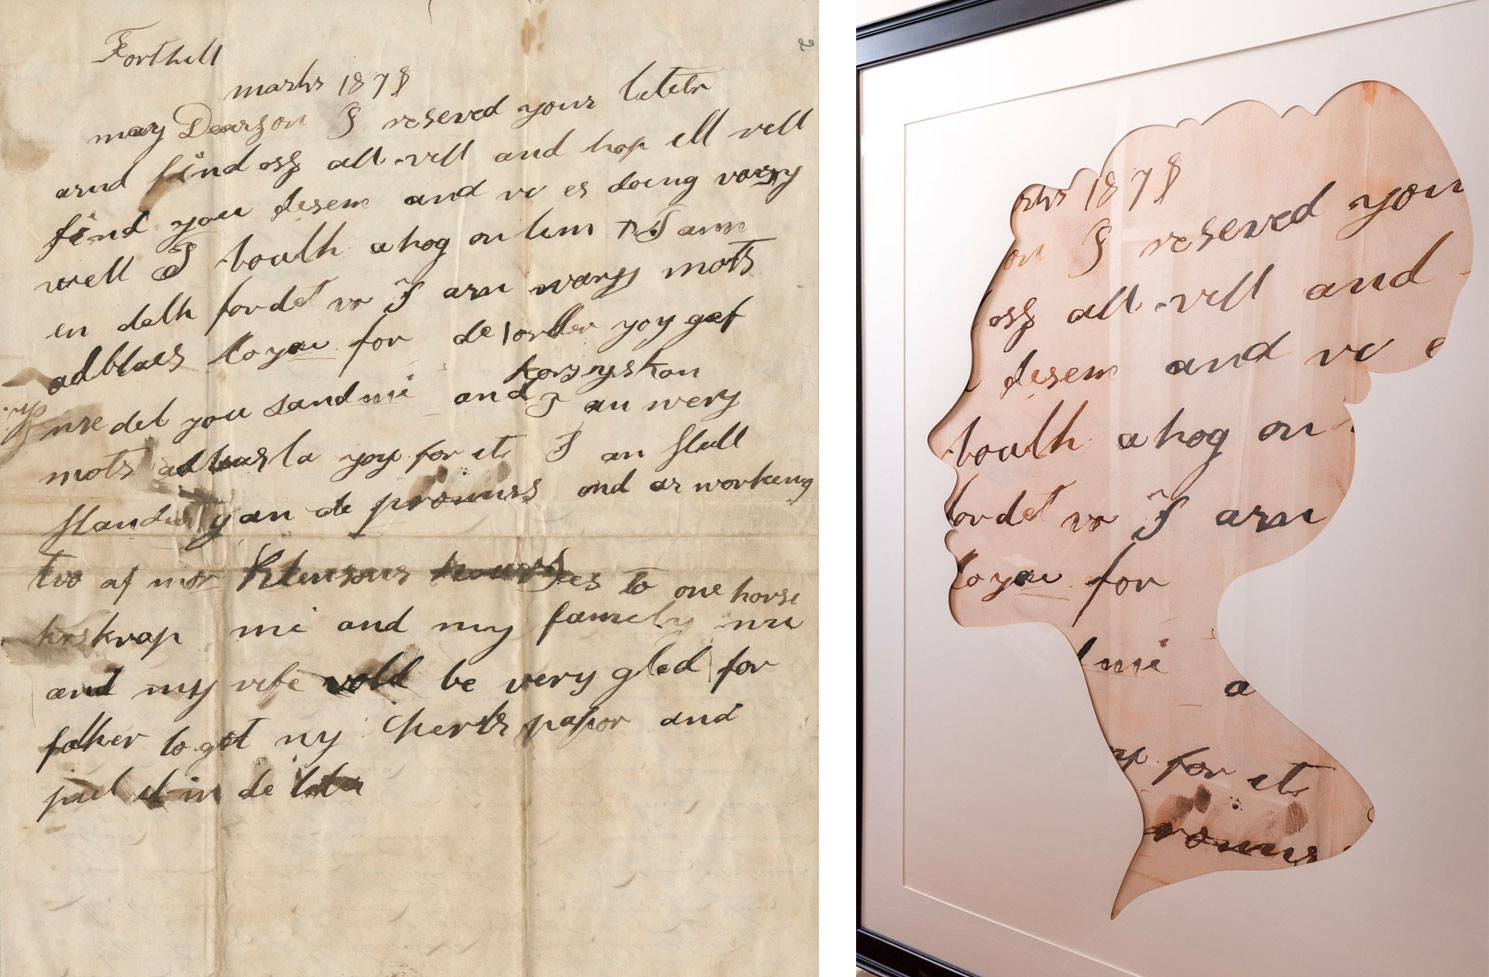 Forthill
marhs 1878
may Dearson I reseved your leter
arnd find osg all vell and hop ell vell
find you desem and ve es doing varry
well I bouth a hog on lim I am
en delh for det vo I arn wary mots
ad blaes to you for de order yoy get
korsyskon
nre det you sand mi and I au wery
mots to yoy for it I an stell
yan de promiss ond ar working
tvo af mor es to one horse
skrap mi and my famely nu
and my vife vold be very gled for
father to got my cherts papor and
put it in de
arhs 1878
on I reseved you
osg all vell and
desem and ve e
bouth a hog on
for det vo I arn
to you for
mi
a
for it
romiss